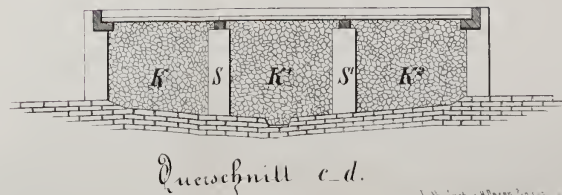 K S K¹ S¹ K²
Querschnitt c-d.